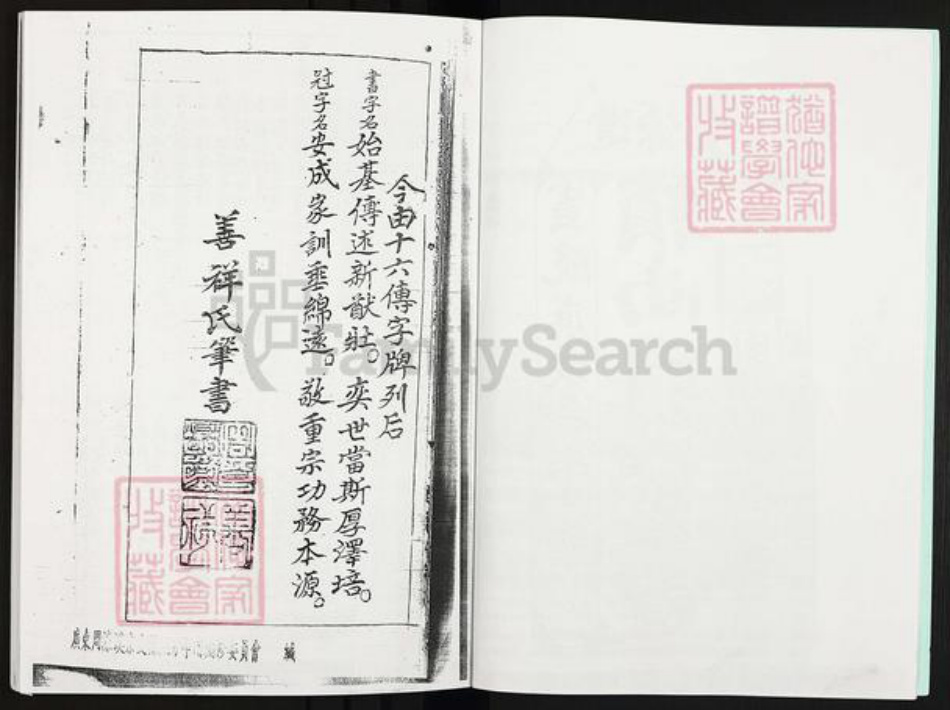 今由十六傳字牌列后
書字名始基傳述新猷壯。奕世當斯厚澤培。
冠字名安成家訓垂綿遠。敬重宗功務本源。
善祥氏筆書
廣東周
委員會 編
譜學會
收藏
FamilySearch